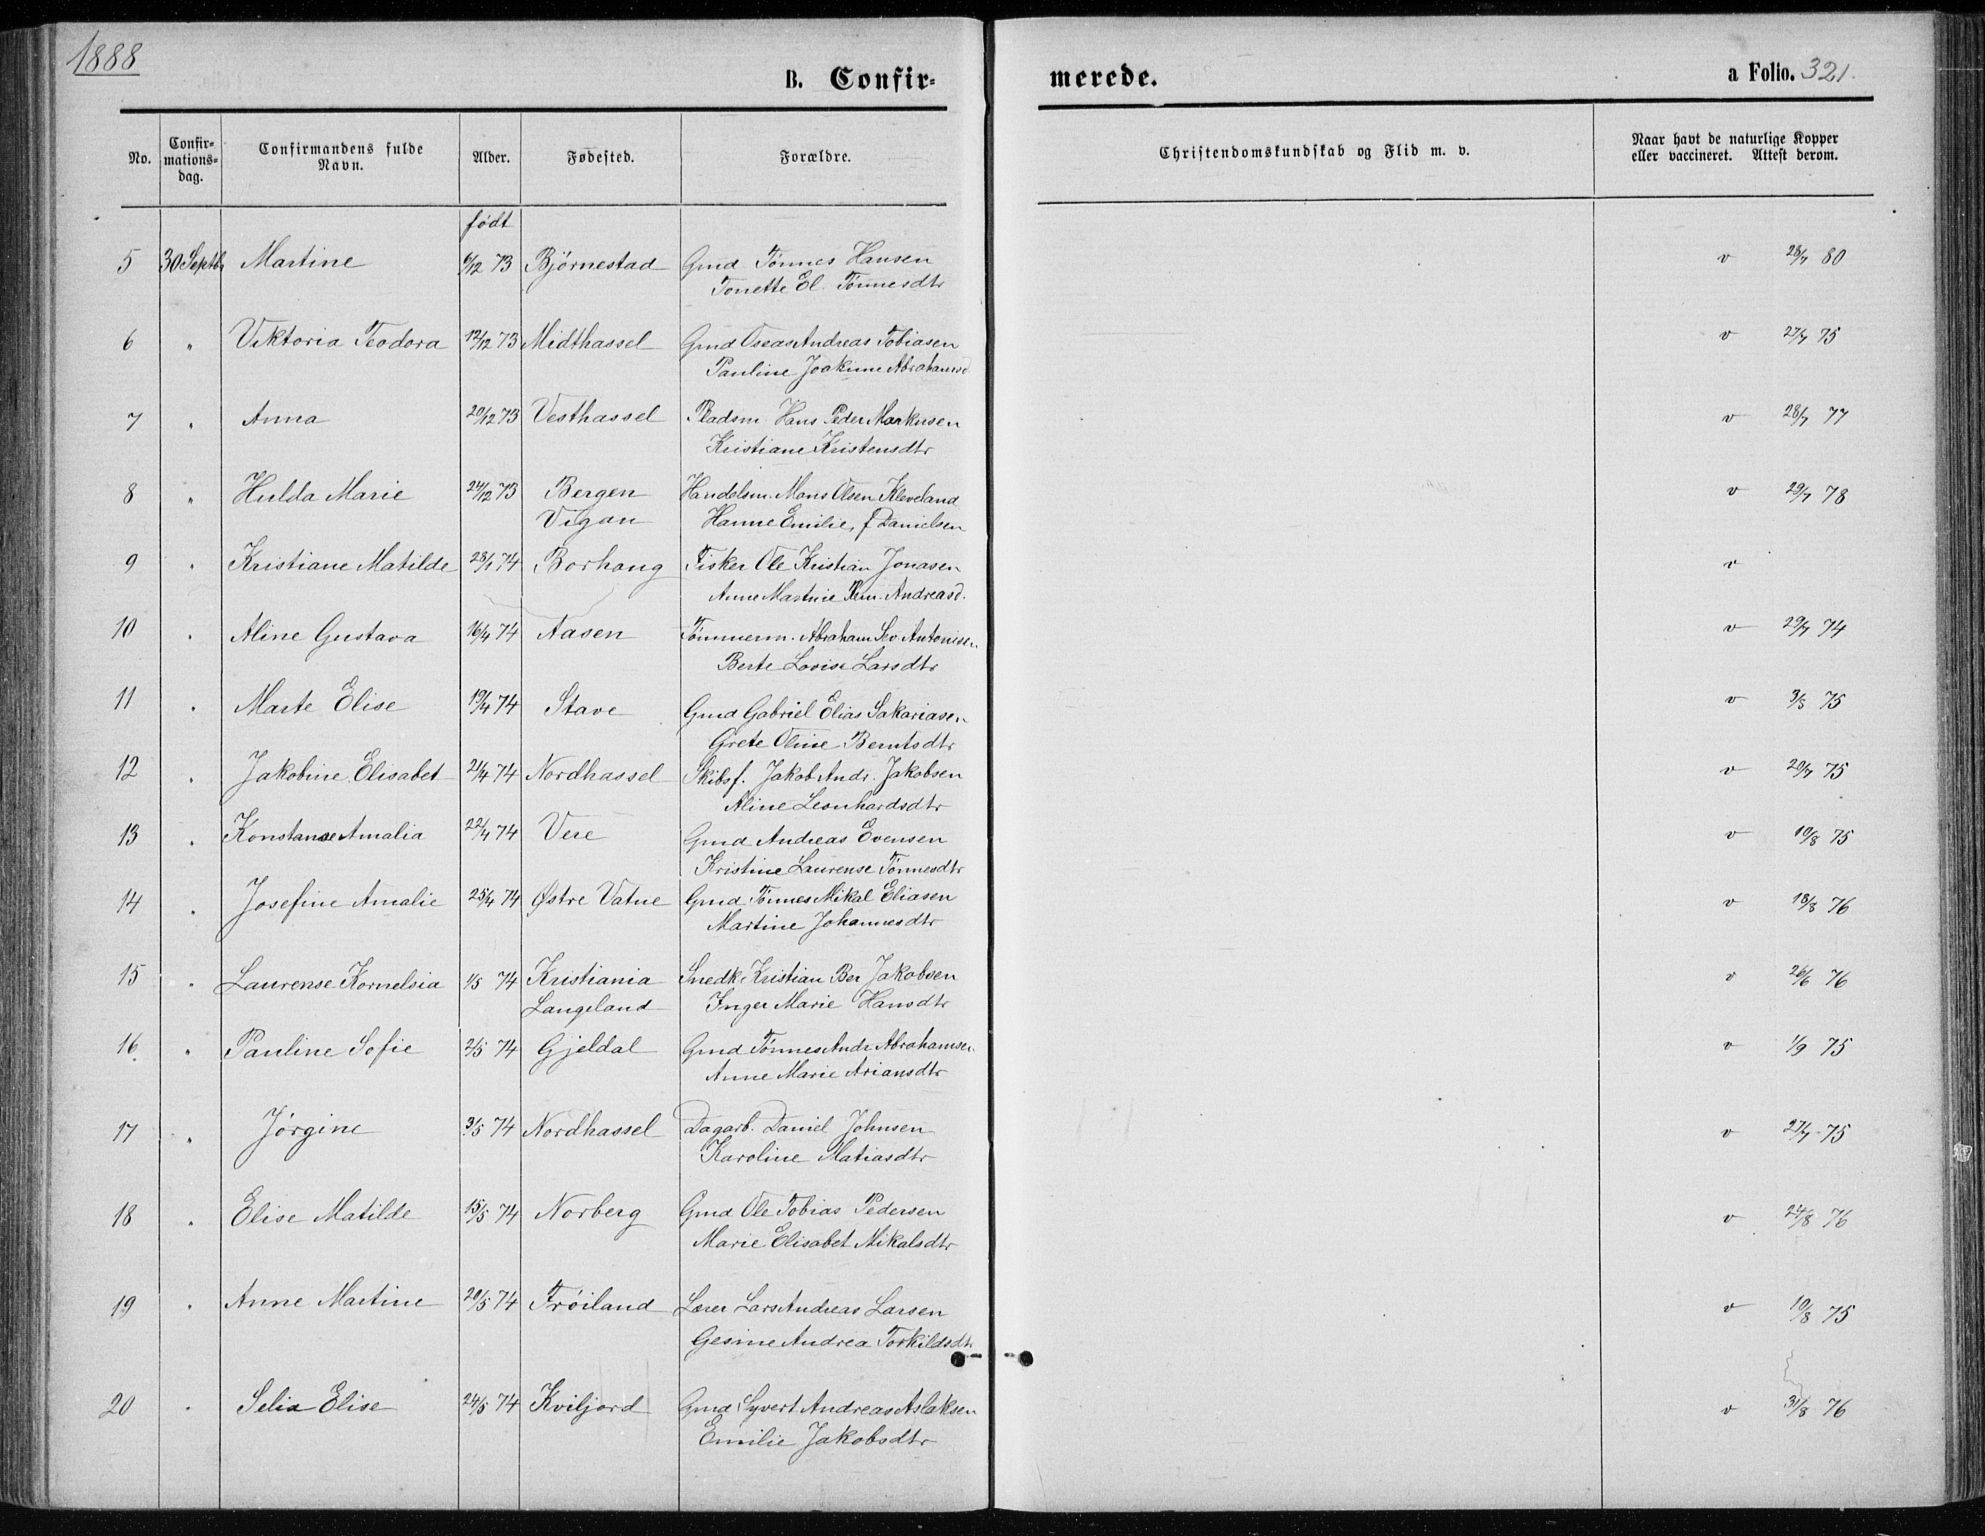 1888
B. Confir-
merede.
a Folio. 321.
No.
Confir-
mations-
dag.
Confirmandens fulde
Navn.
Alder.
Fødested.
Forældre.
Christendomskundskab og Flid m. v.
Naar havt de naturlige Kopper
eller vaccineret. Attest derom.
født
5 30 Septb. Martine 6/12 73 Bjørnestad Gmd Tønnes Hansen v 28/7 80
Tonette El. Tønnesdtr
6 " Viktoria Teodora 12/12 73 Midthassel Gmd Oseas Andreas Tobiasen v 27/7 75
Pauline Joakime Abrahamsd
7 " Anna 20/12 73 Vesthassel Pladsm Hans Peder Markusen v 28/7 77
Kristiane Kristensdtr
8 " Hulda Marie 24/12 73 Bergen Handelsm. Mons Olsen Kleveland v 29/7 78
Vigan Hanne Emilie, f Danielsen
9 " Kristiane Matilde 28/1 74 Borhaug Fisker Ole Kristian Jonasen v
Anne Martine Andreasd.
10 " Aline Gustava 16/4 74 Aasen Tømmerm. Abraham Sev Antonisen v 29/7 74
Berte Lovise Larsdtr
11 " Marte Elise 19/4 74 Stave Gmd Gabriel Elias Sakariasen v 3/8 75
Grete Oline Berntsdtr
12 " Jakobine Elisabet 21/4 74 Nordhassel Skibsf. Jakob Andr. Jakobsen v 20/7 75
Aline Leonhardsdtr
13 " Konstanse Amalia 22/4 74 Vere Gmd Andreas Evensen v 10/8 75
Kristine Laurense Tønnesdtr
14 " Josefine Amalie 25/4 74 Østre Vatne Gmd Tønnes Mikal Eliasen v 18/8 76
Martine Johannesdtr
15 " Laurense Kornelia 1/5 74 Kristiania Snedk. Kristian Ber Jakobsen v 26/6 76
Langeland Inger Marie Hansdtr
16 " Pauline Sofie 2/5 74 Gjeldal Gmd Tønnes Andr Abrahamsen v 1/9 75
Anne Marie Ariansdtr
17 " Jørgine 3/5 74 Nordhassel Dagarb. Daniel Johnsen v 27/7 75
Karoline Matiasdtr
18 " Elise Matilde 15/5 74 Norberg Gmd Ole Tobias Pedersen v 24/8 76
Marie Elisabet Mikalsdtr
19 " Anne Martine 20/5 74 Frøiland Lærer Lars Andreas Larsen v 10/8 75
Gesine Andrea Torkildsdtr
20 " Selia Elise 24/5 74 Kviljord Gmd Syvert Andreas Aslaksen v 31/8 76
Emilie Jakobsdtr